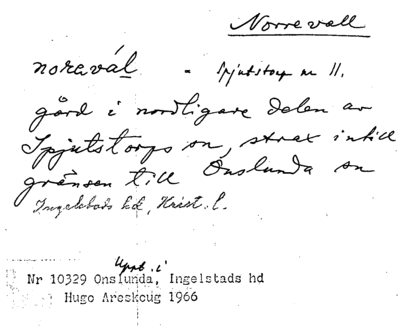 Norrevall
noravál - Spjutstorp nr 11.
gård i nordligare delen av
Spjutstorps sn, strax intill
gränsen till Onslunda sn
Ingelstads hd, Krist. l.
Uppt. i
Nr 10329 Onslunda, Ingelstads hd
Hugo Areskoug 1966